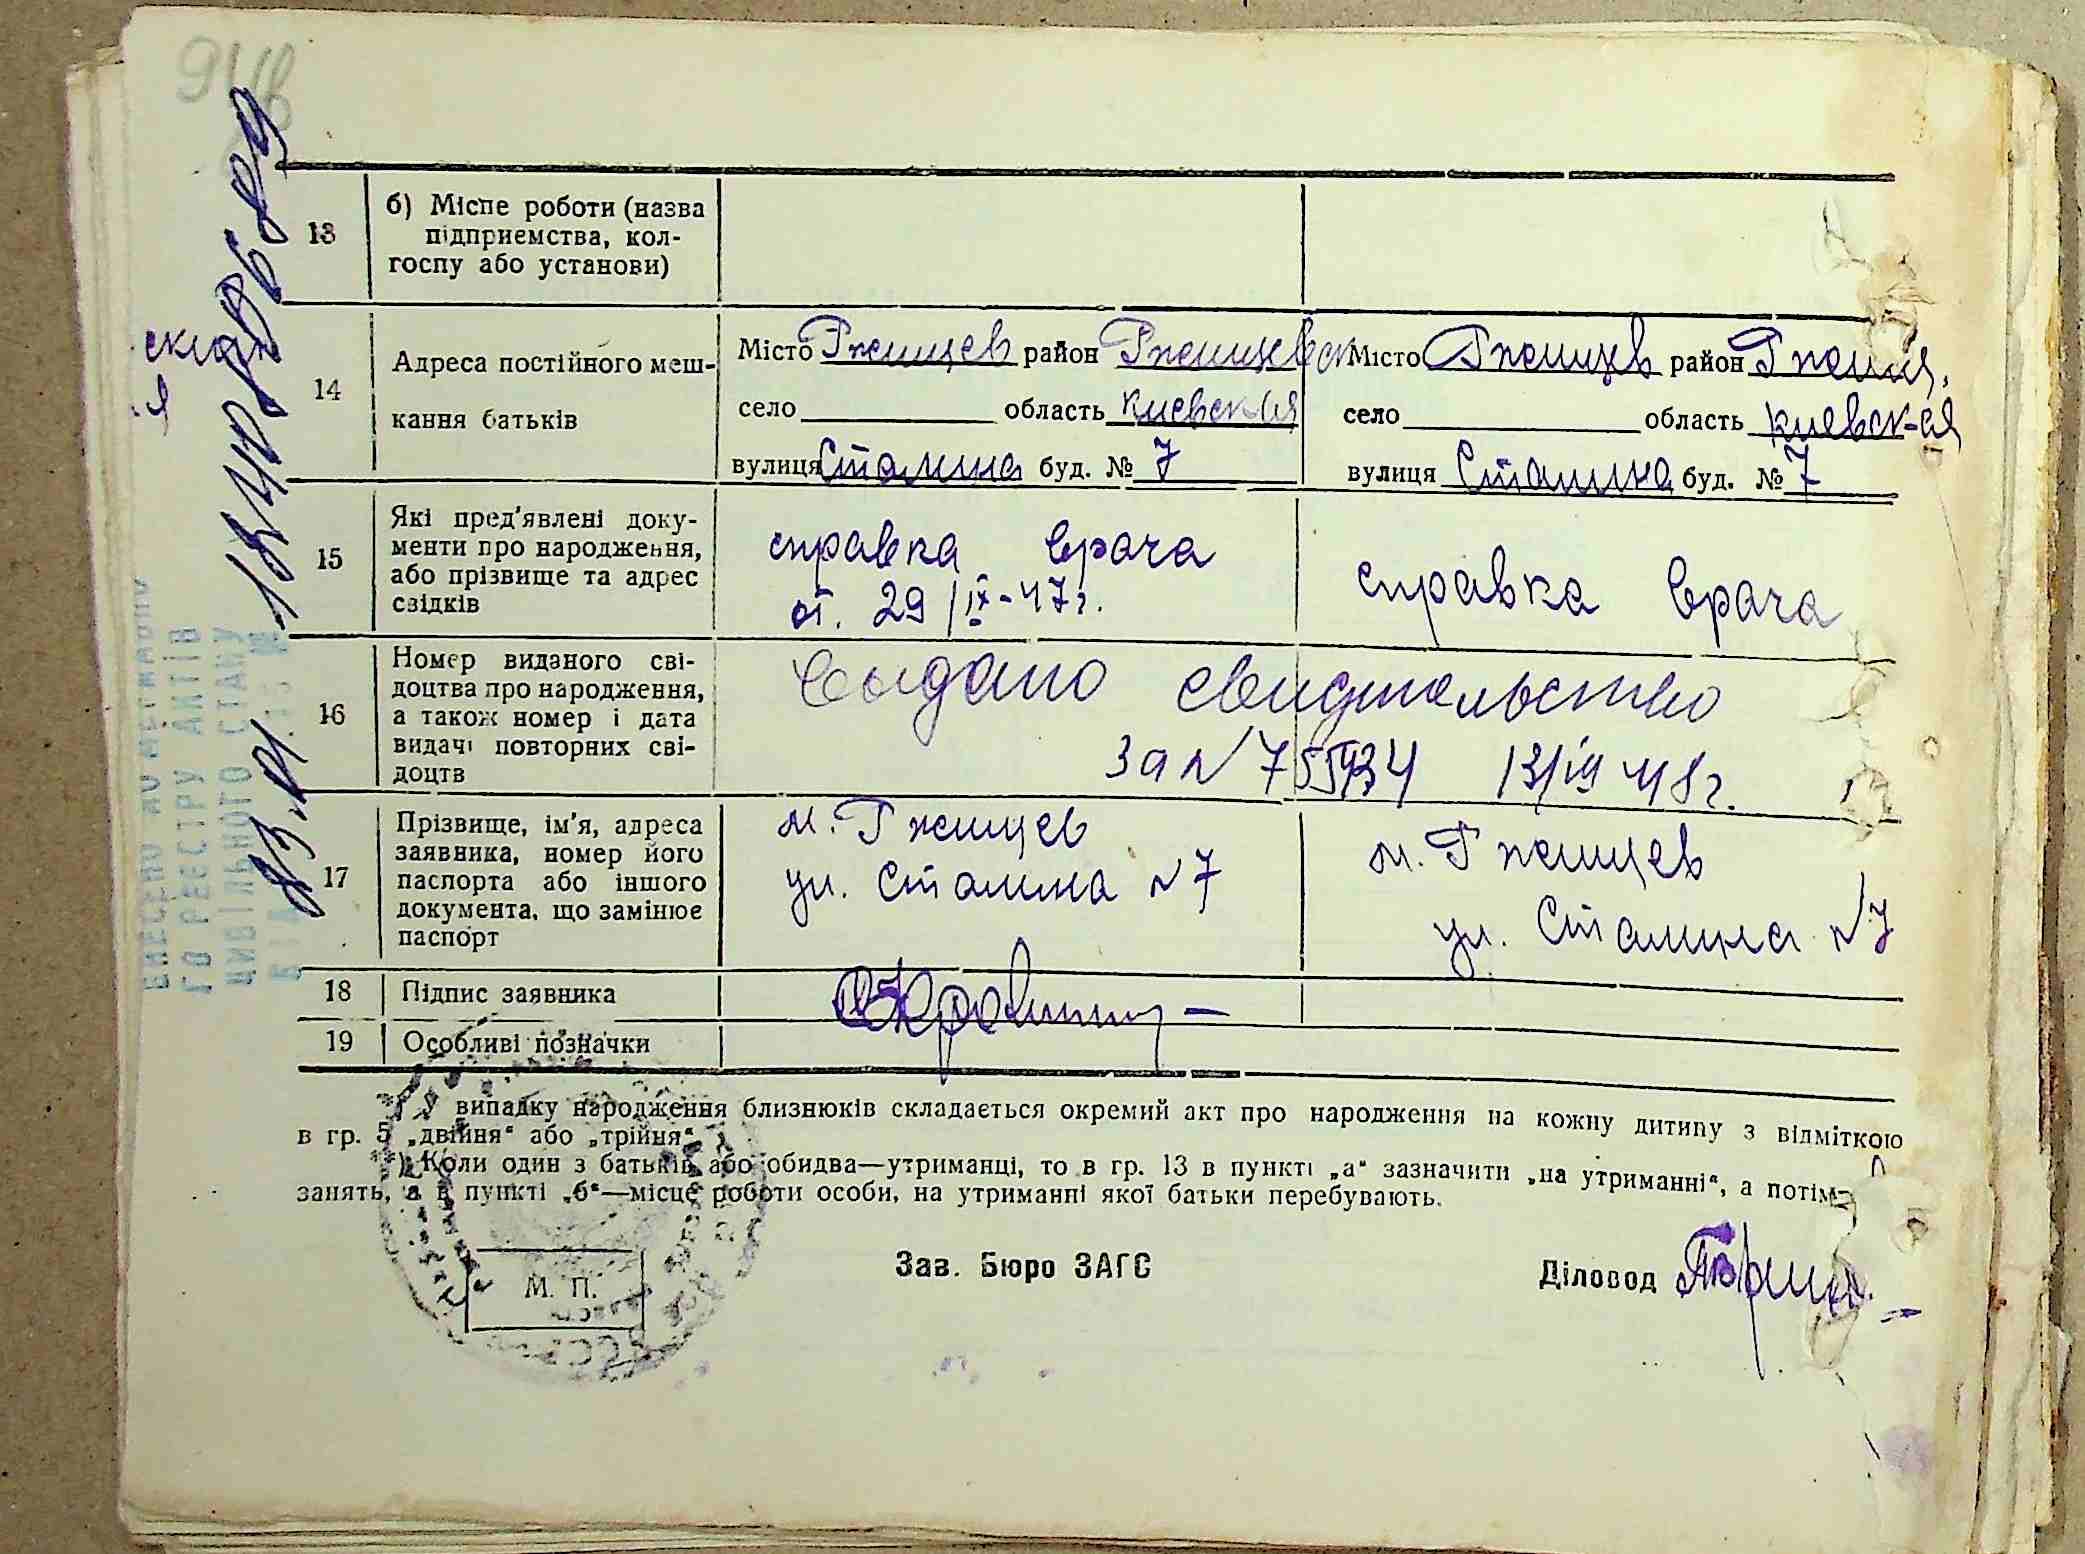 13 б) Місце роботи (назва
підприємства, кол-
госпу або установи)
14 Адреса постійного меш-
кання батьків
Місто Ржищев район Ржищевск
село область Киевск-ая
вулиця Сталина буд. № 7
Місто Ржищев район Ржищ.
село область Киевск-ая
вулиця Сталина буд. № 7
15 Які пред'явлені доку-
менти про народження,
або прізвище та адрес
свідків
справка врача
от. 29/IX-47г.
справка врача
16 Номер виданого сві-
доцтва про народження,
а також номер і дата
видачі повторних сві-
доцтв
Выдано свидительство
за N
17 Прізвище, ім'я, адреса
заявника, номер його
паспорта або іншого
документа, що замінює
паспорт
м. Ржищев
ул. Сталина N 7
м. Ржищев
ул. Сталина N 7
18 Підпис заявника
19 Особливі позначки
*) У випадку народження близнюків складається окремий акт про народження на кожну дитину з відміткою
в гр. 5 „двійня“ або „трійня“.
*) Коли один з батьків або обидва—утриманці, то в гр. 13 в пункті „а“ зазначити „на утриманні“, а потім
занять, а в пункті „б“—місце роботи особи, на утриманні якої батьки перебувають.
М. П.
Зав. Бюро ЗАГС
Діловод
ГО РЕЄСТРУ АКТІВ
ЦИВІЛЬНОГО СТАНУ